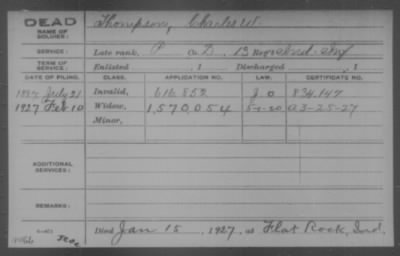 DEAD
NAME OF SOLDIER: Thompson, Charles W.
SERVICE: Late rank, P Co. D, 13 Reg't Ind. Inf
TERM OF SERVICE: Enlisted , 1 Discharged , 1
DATE OF FILING. CLASS. APPLICATION NO. LAW. CERTIFICATE NO.
July 21 Invalid, 616.852 G.O 834.147
1927 Feb 10 Widow, 1,570,054 5-1-20 A3-25-27
Minor,
ADDITIONAL SERVICES:
REMARKS:
Died Jan 15, 1927, at Flat Rock, Ind.